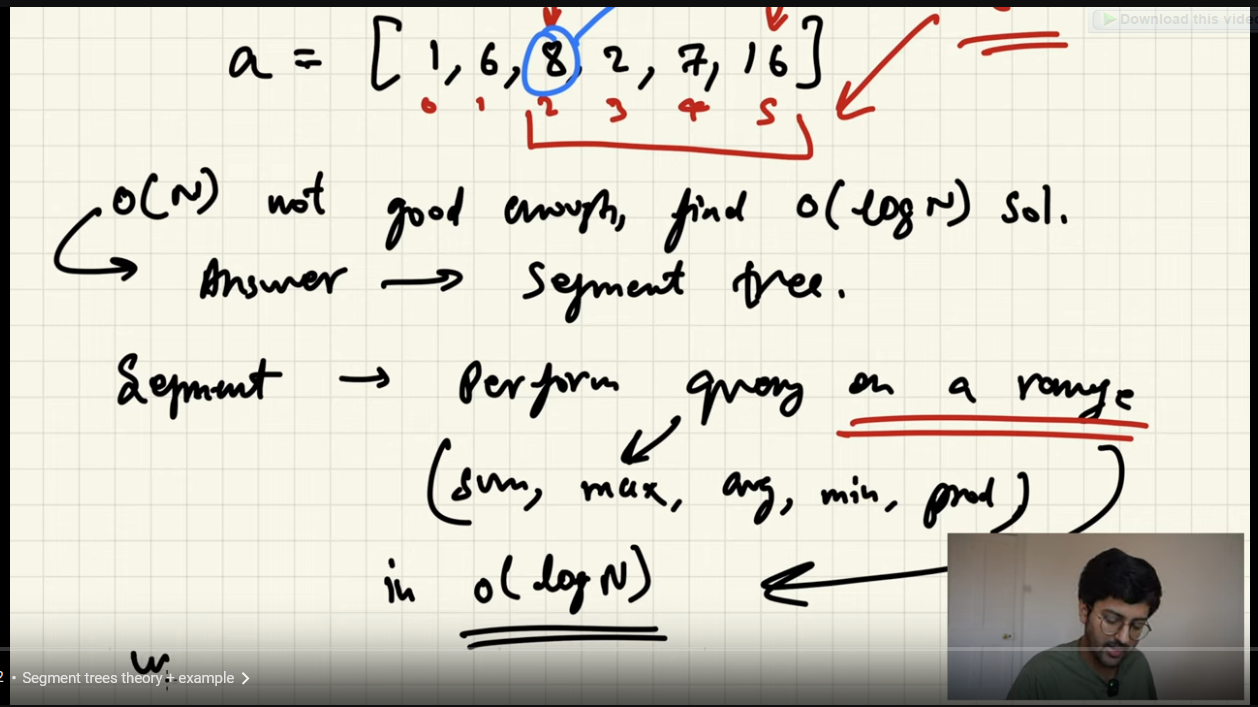 Download this vide
a = [ 1, 6, 8, 2, 7, 16 ]
0 1 2 3 4 5
O(N) not good enough, find O(log N) sol.
Answer → Segment tree.
Segment → Perform query on a range
(sum, max, avg, min, prod)
in O(log N)
w
2 • Segment trees theory + example >